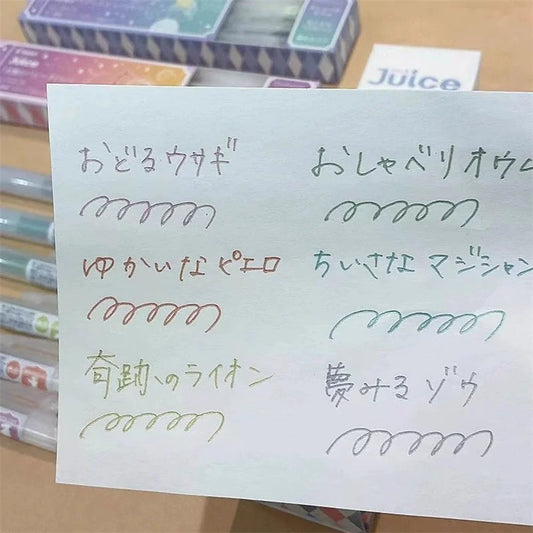 Juice
Juice
おどるウサギ
おしゃべりオウム
ゆかいなピエロ
ちいさなマジシャン
奇跡のライオン
夢みるゾウ